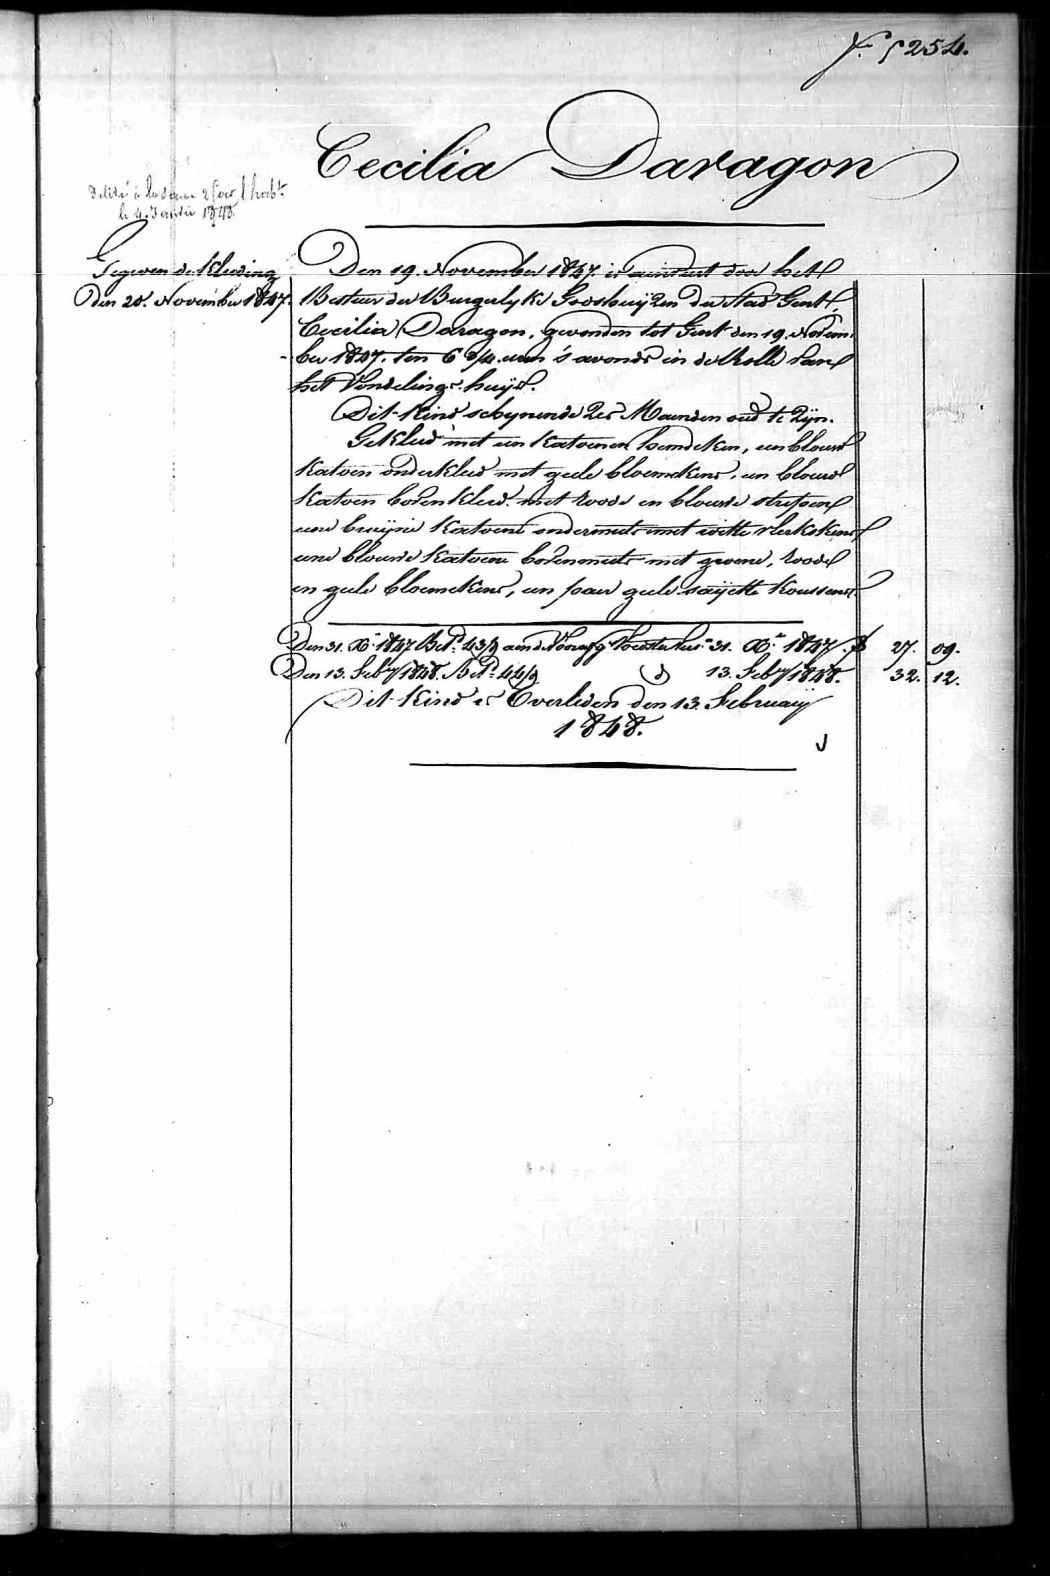 F.° 5254.
Cecilia Daragon
le 4 Janvier 1848.
Gegeven de Kleeding
Den 20. November 1847.
Den 19. November 1847 is aenveert door het
Bestuer der Burgerlyke Godshuyzen der stad Gent,
Cecilia Daragon, gevonden tot Gent den 19. Novem-
ber 1847. ten 6 3/4 uren 's avonds in de Rolle van
het Vondelings-huys.
Dit Kind schynende zes Maenden oud te zyn.
Gekleed met een Katoenen hemdeken, een blouw
Katoen onderkleed met geele bloemekens, een blouw
Katoen bovenkleed met roode en blouwe strepen
eene bruyne Katoene ondermuts met witte vlekskens,
eene blouwe Katoene bovenmuts met groene, roode
en geele bloemekens, een paer geele sayette Koussens.
Den 31. Xb. 1847 Bet. 43/g aen de Voorzg 31. Xb. 1847. 27. 09.
Den 13. feby 1848. Bet. 44/g d° 13. feby 1848. 32. 12.
Dit Kind is Overleden den 13. February
1848.